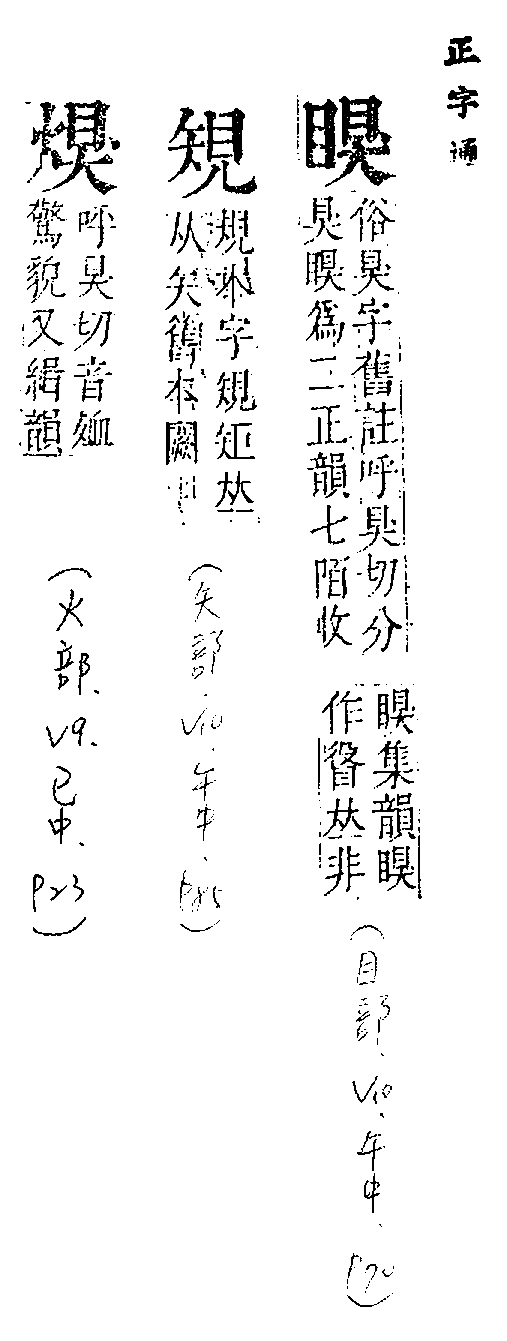 正字通
瞁
俗狊字舊註呼狊切分
狊瞁爲二正韻七陌收
瞁集韻瞁
作䀫𠀤非
(目部、V10、午中、P70)
䂓
規本字䂓矩𠀤
从矢舊本闕
(矢部、V10、午中、P85)
焸
呼狊切音殈
驚貌又緝韻
(火部、V9、巳中、P23)